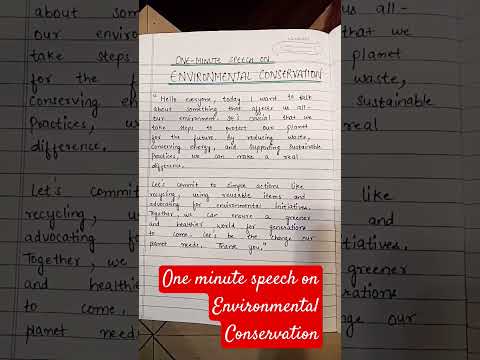 ONE-MINUTE SPEECH ON
ENVIRONMENTAL CONSERVATION
"Hello everyone, today I want to talk
about something that affects us all-
our environment. It's crucial that we
take steps to protect our planet
for the future. By reducing waste,
conserving energy, and supporting sustainable
practices, we can make a real
difference.
Let's commit to simple actions like
recycling, using reusable items and
advocating for environmental initiatives.
Together, we can ensure a greener
and healthier world for generations
to come. Let's be the change our
planet needs. Thank you."
One minute speech on
Environmental
Conservation
about som
our environ
take steps
for the f
Conserving e
Practices, u
difference.
Let's co
recycling,
advocating
Together, w
and he
to come,
planet need
us all-
that we
planet
waste,
sustainable
real
like
and
itiatives.
greener
erations
nge our